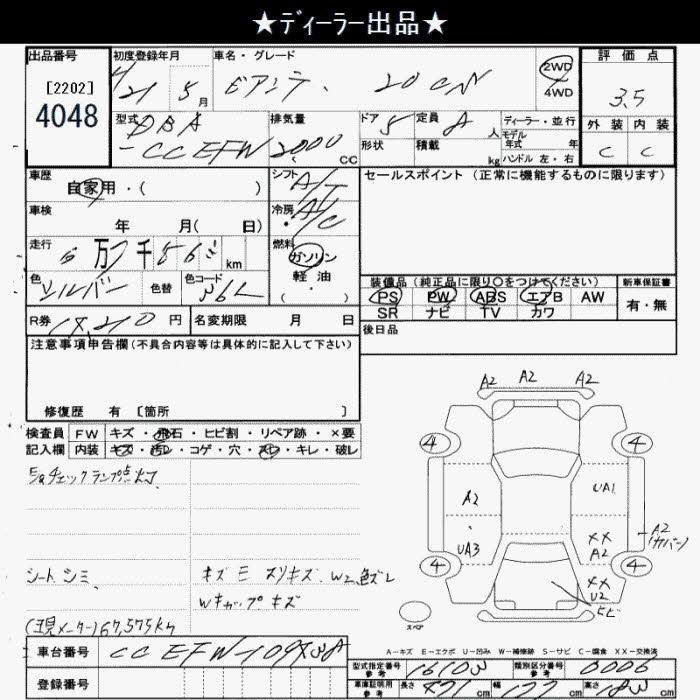 ★ディーラー出品★
出品番号 初度登録年月 車名・グレード 評価点
[2202]
4048
21 5月 ビアンテ 20CN 2WD 4WD 3.5
型式 DBA 排気量 ドア 5 定員 8人 ディーラー・並行 外装 内装
-CCEFW 2000cc 形状 積載 kg モデル年式 年 C C
ハンドル 左・右
車歴 自家用・( ) シフト A/T セールスポイント (正常に機能するものに限ります)
車検 年 月( 日) 冷房 A/C
走行 6万7千 km 燃料 ガソリン
軽・油
( )
色 シルバー 色替 色コード 36L
装備品 (純正品に限り○をつけてください) 新車保証書
PS PW ABS エアB AW 有・無
SR ナビ TV カワ
R券 円 名変期限 月 日 後日品
注意事項申告欄(不具合内容等は具体的に記入して下さい)
修復歴 有 [箇所 ]
検査員 FW キズ・飛石・ヒビ割・リペア跡・×要
記入欄 内装 キズ・汚レ・コゲ・穴・スレ・キレ・破レ
E/gチェックランプ点灯
シートシミ キズ モ スリキズ、W2、色ズレ
Wキャップキズ
(現メーター)67,575km
A2 A2 A2
4 4
A2 UA1
UA3 XX A2
A2 (カバー)
4 4
XX U2
ヒビ
スペア
A-キズ E-エクボ U-凹み W-補修跡 S-サビ C-腐食 XX-交換済
車台番号 CCEFW-109838
登録番号
型式指定番号 参考 16103 類別区分番号 参考 0006
車庫証明用 参考 長さ 471cm 幅 177cm 高さ 183cm